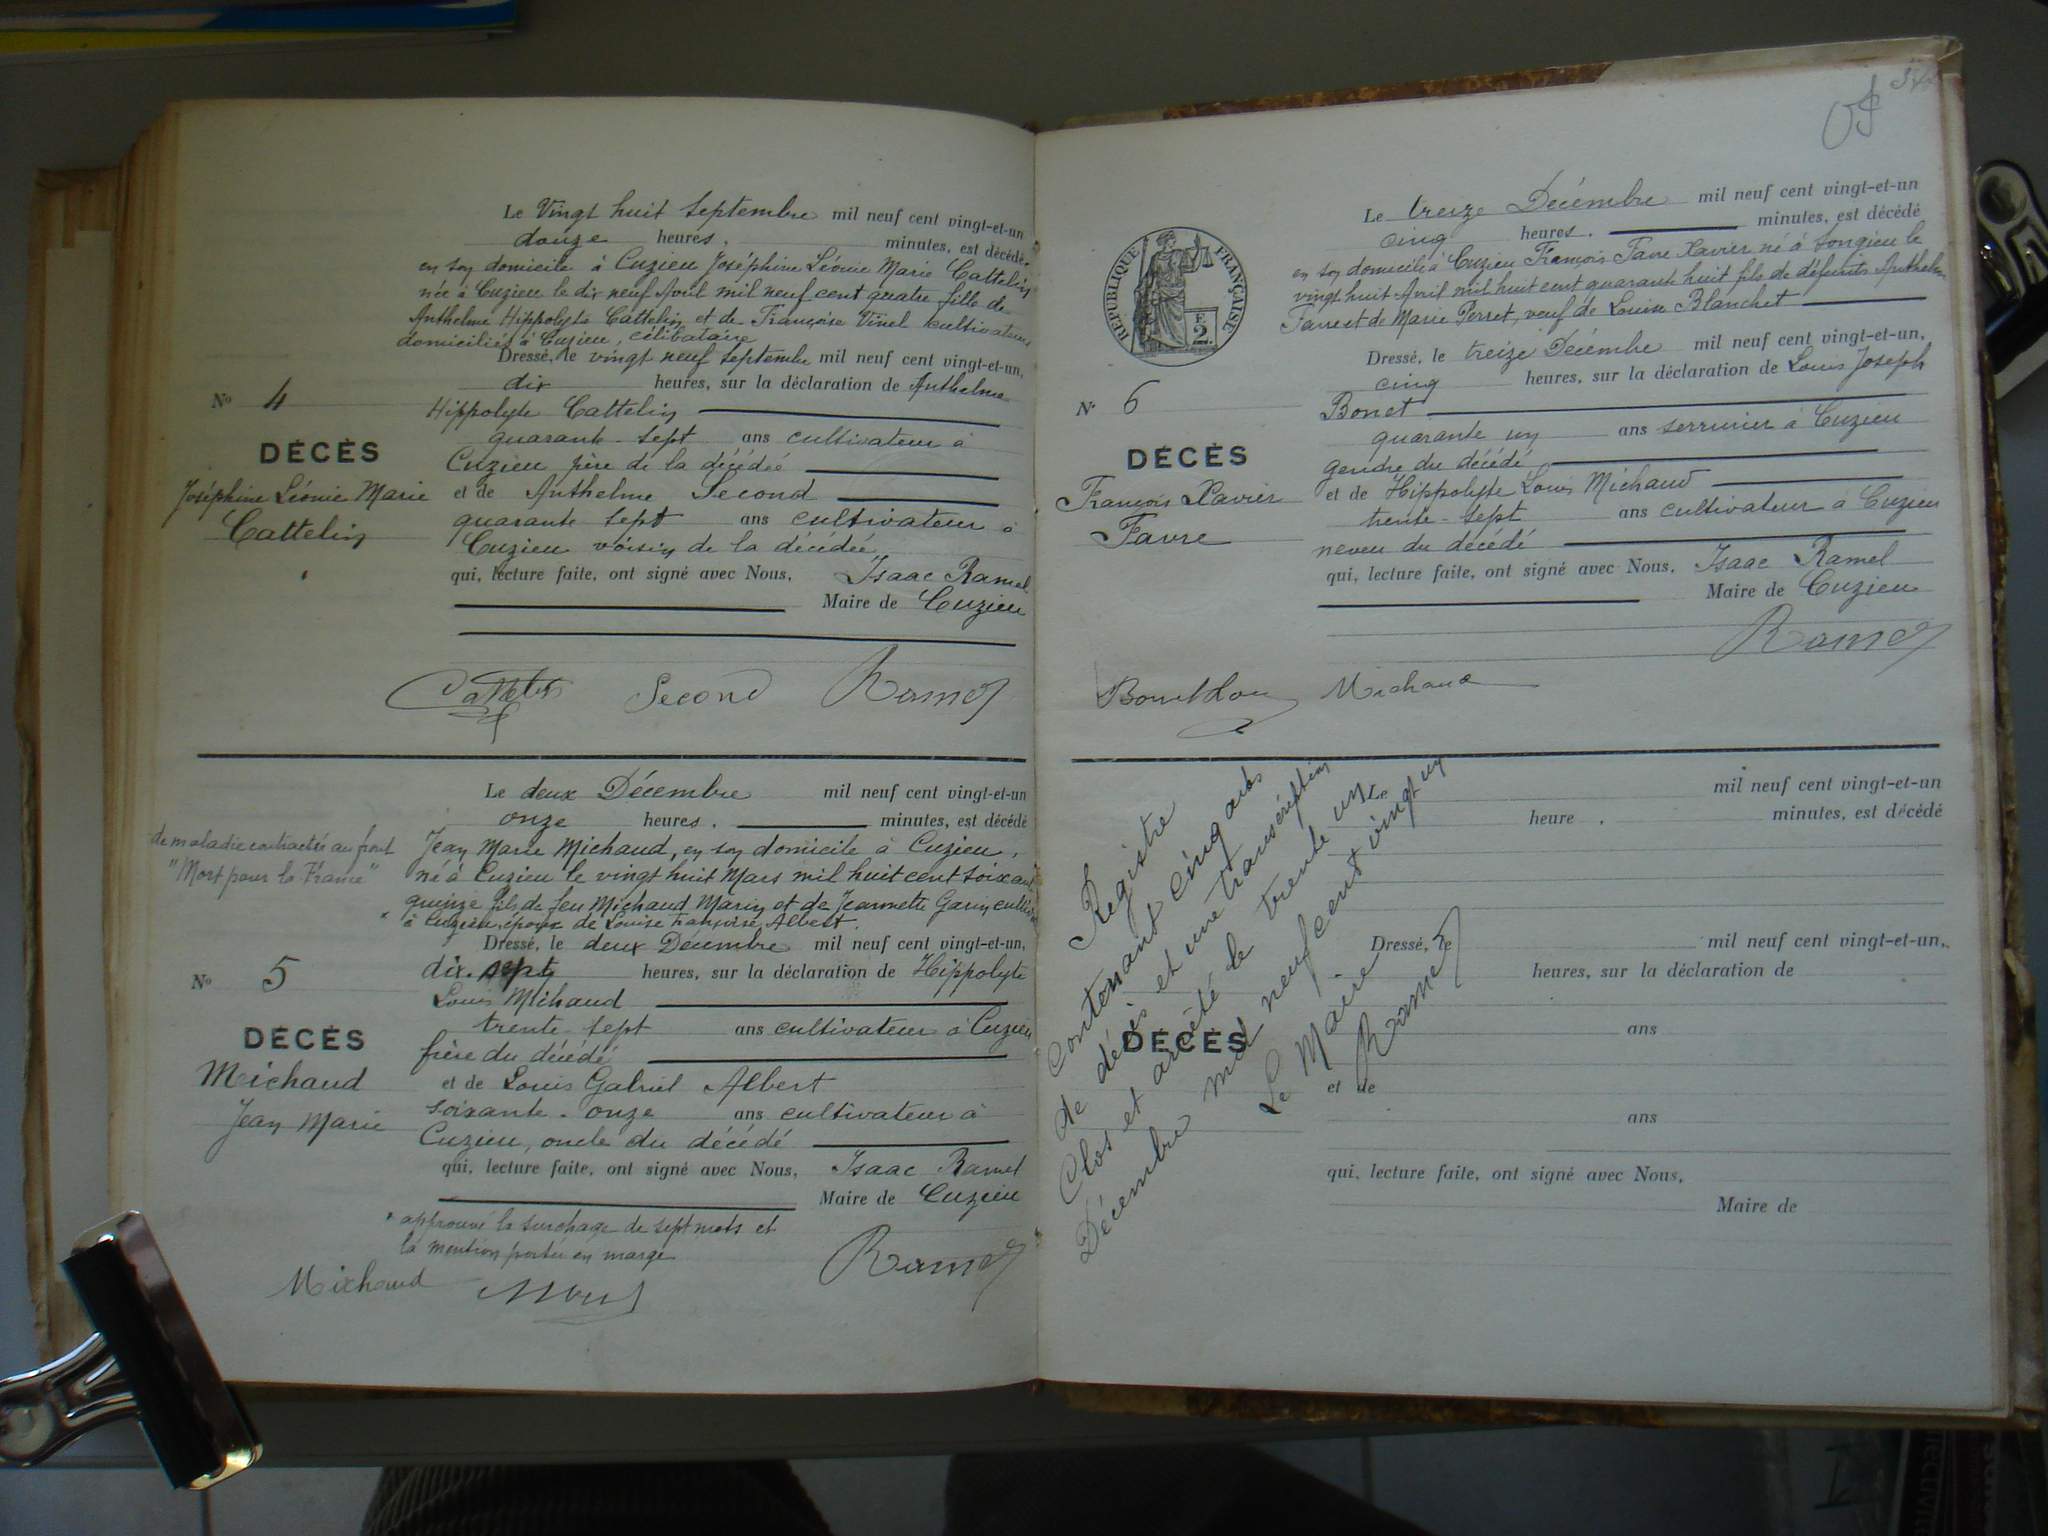 Le Vingt huit Septembre mil neuf cent vingt-et-un
douze heures, minutes, est décédée
en son domicile à Cuzieu Joséphine Léonie Marie Cattelin
née à Cuzieu le dix neuf Avril mil neuf cent quatre fille de
Anthelme Hippolyte Cattelin et de Françoise Vinel cultivateurs
domiciliés à Cuzieu, célibataire
Dressé, le vingt neuf septembre mil neuf cent vingt-et-un,
dix heures, sur la déclaration de Anthelme
Nº 4
Hippolyte Cattelin
quarante-sept ans cultivateur à
DÉCÈS
Cuzieu père de la décédée
Joséphine Léonie Marie
Cattelin
et de Anthelme Second
quarante sept ans cultivateur à
Cuzieu voisin de la décédée
qui, lecture faite, ont signé avec Nous, Isaac Ramel
Maire de Cuzieu
Cattelin Second Ramel
Le deux Décembre mil neuf cent vingt-et-un
onze heures, minutes, est décédé
de maladie contractée au front
"Mort pour la France"
Jean Marie Michaud, en son domicile à Cuzieu,
né à Cuzieu le vingt huit Mars mil huit cent soixante
quinze fils de feu Michaud Marin et de Jeannette Garin cultiv
à Cuzieu, époux de Louise Françoise Albert.
Dressé, le deux Décembre mil neuf cent vingt-et-un,
Nº 5
dix-sept heures, sur la déclaration de Hippolyte
Louis Michaud
trente-sept ans cultivateur à Cuzieu
DÉCÈS
frère du décédé
Michaud
Jean Marie
et de Louis Gabriel Albert
soixante-onze ans cultivateur à
Cuzieu, oncle du décédé
qui, lecture faite, ont signé avec Nous, Isaac Ramel
Maire de Cuzieu
approuvé la surchage de sept mots et
la mention portée en marge
Michaud Ramel
Le treize Décembre mil neuf cent vingt-et-un
cinq heures, minutes, est décédé
RÉPUBLIQUE FRANÇAISE
F.
2.
en son domicile à Cuzieu François Favre Xavier né à Songieu le
vingt huit Avril mil huit cent quarante huit fils de défunts Anthelme
Favre et de Marie Perret, veuf de Louise Blanchet
Dressé, le treize Décembre mil neuf cent vingt-et-un,
cinq heures, sur la déclaration de Louis Joseph
Nº 6
Bonet
quarante un ans serrurier à Cuzieu
DÉCÈS
gendre du décédé
François Xavier
Favre
et de Hippolyte Louis Michaud
trente-sept ans cultivateur à Cuzieu
neveu du décédé
qui, lecture faite, ont signé avec Nous, Isaac Ramel
Maire de Cuzieu
Ramel
Michaud
Registre
contenant cinq actes
de décès et une transcription
Clos et arrêté le trente un
Décembre mil neuf cent vingt un
Le Maire
Ramel
Le mil neuf cent vingt-et-un
heure, minutes, est décédé
Dressé, le mil neuf cent vingt-et-un,
heures, sur la déclaration de
DÉCÈS
ans
et de
ans
qui, lecture faite, ont signé avec Nous,
Maire de